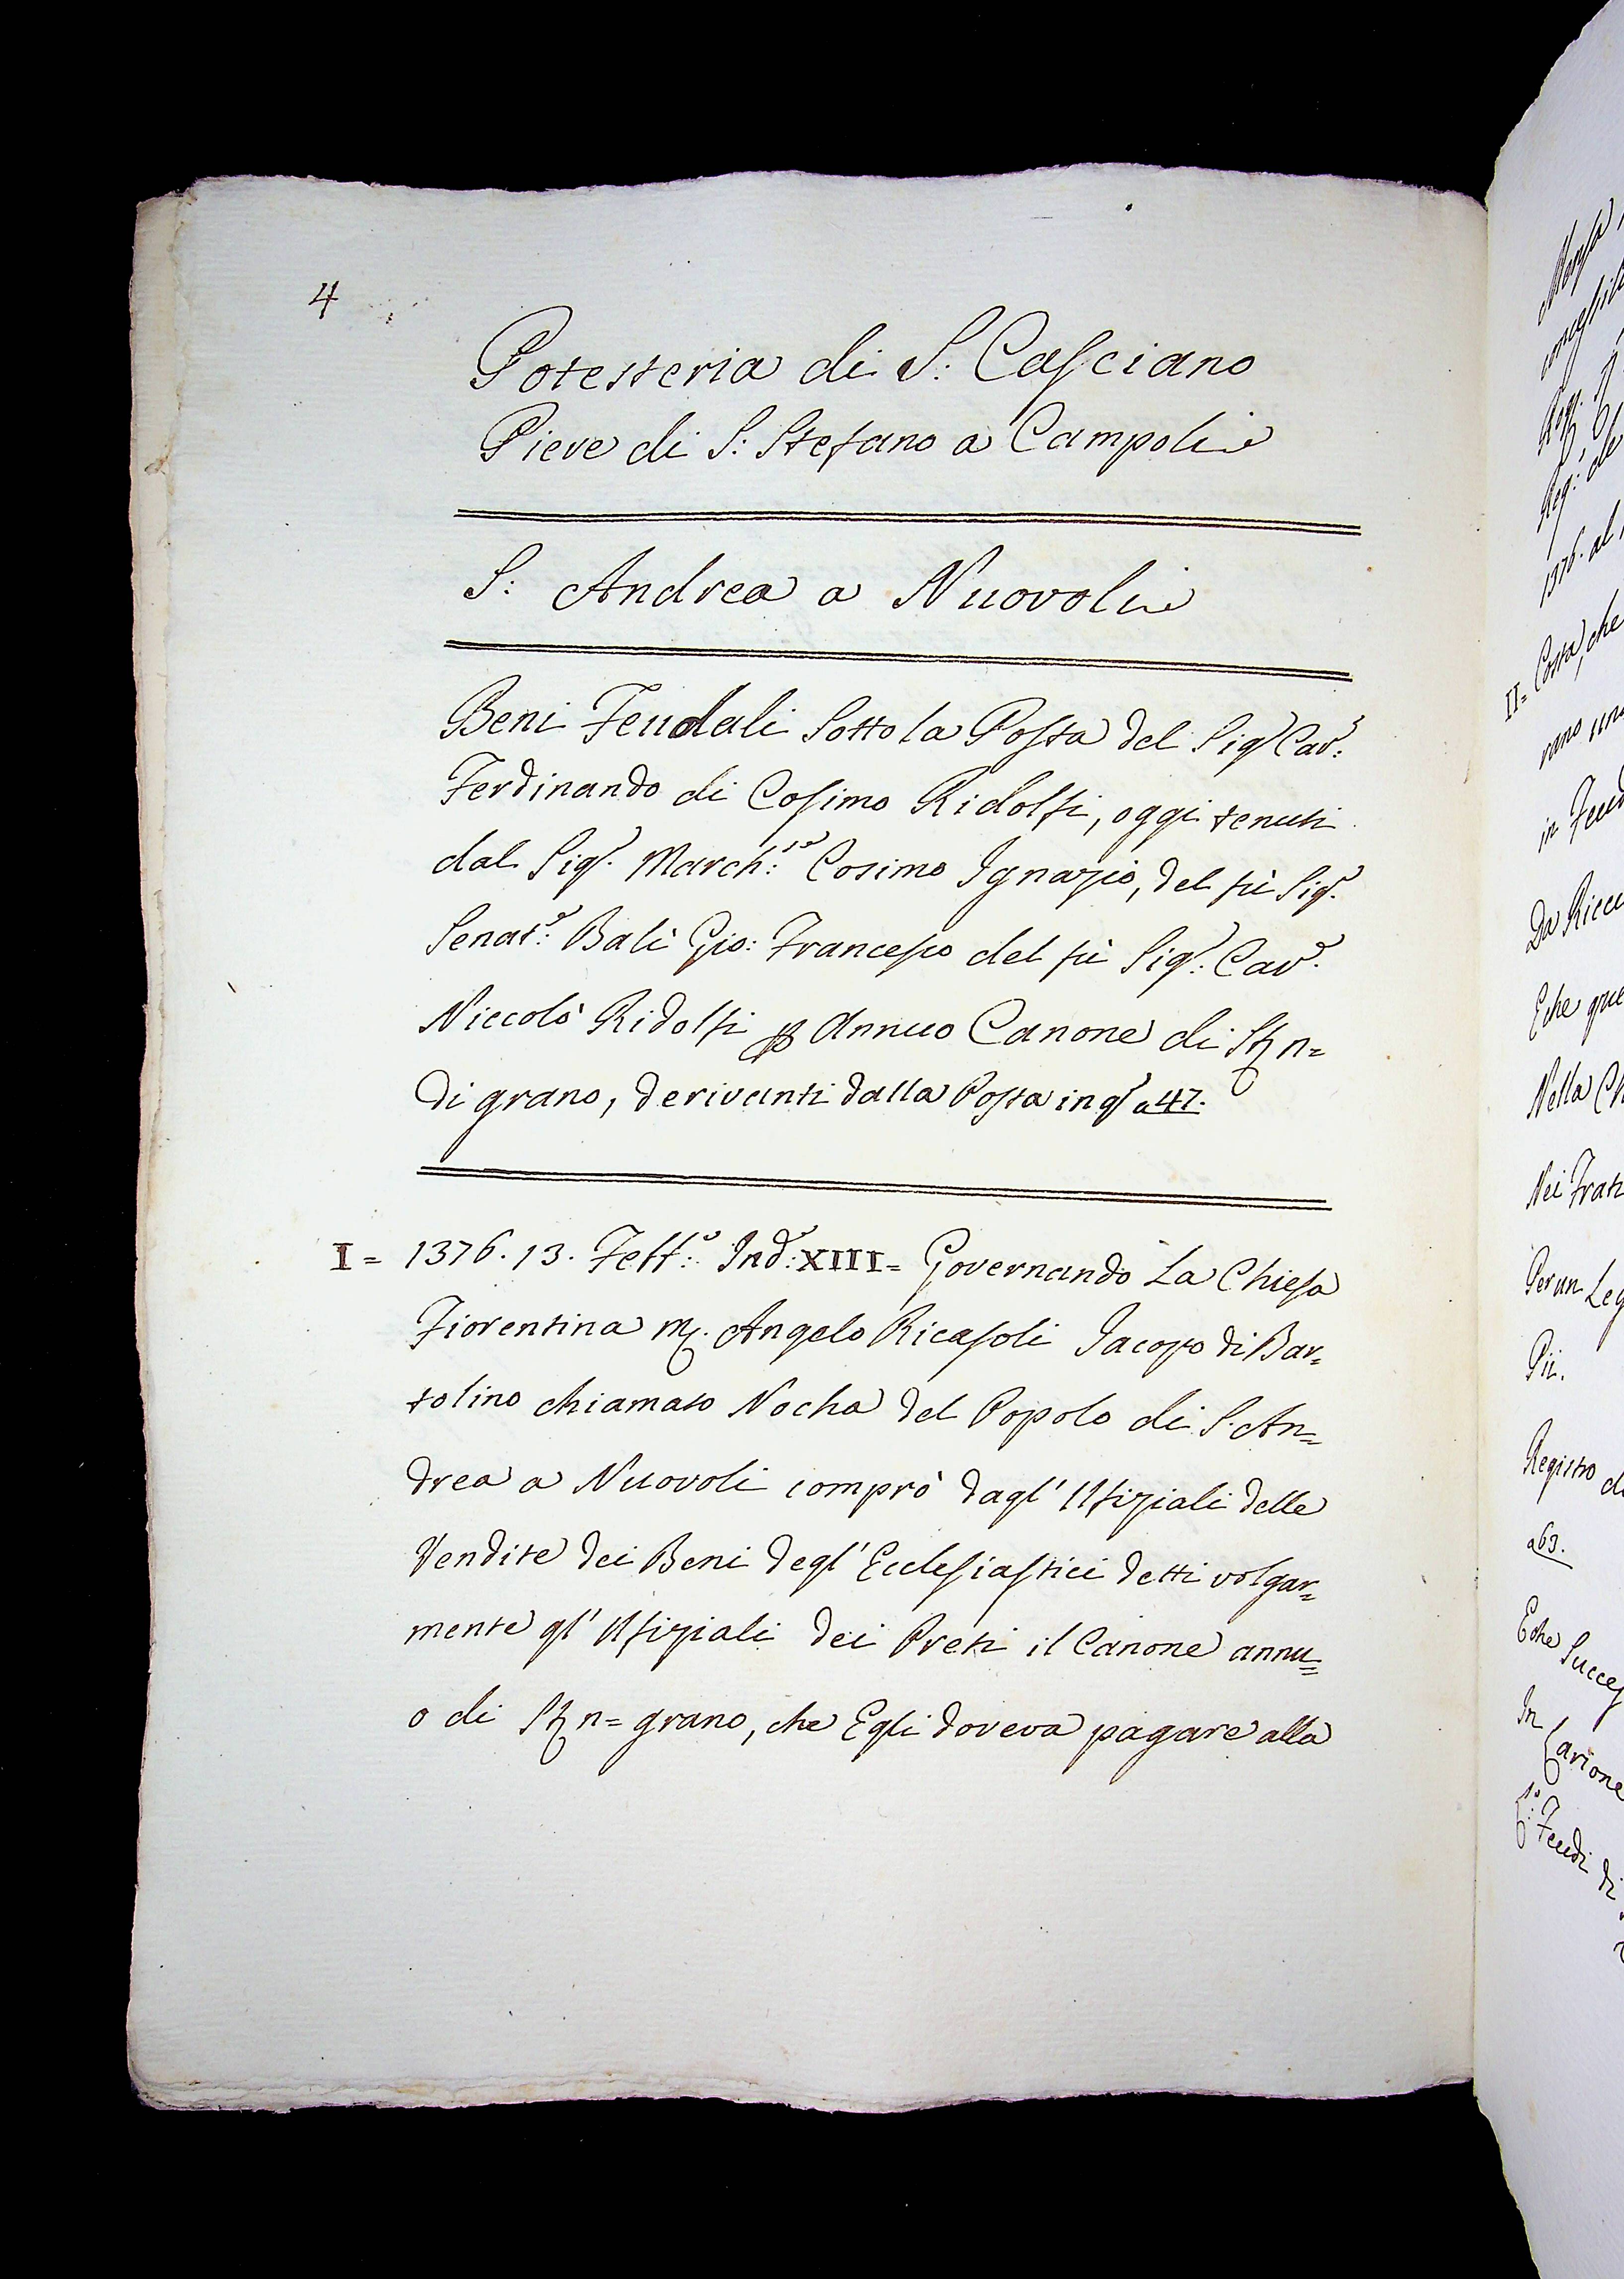 4
Potesteria di S: Casciano
Pieve di S: Stefano a Campoli
S: Andrea a Nuovoli
Beni Feudali Sotto la Posta del Sigr Cavr:
Ferdinando di Cosimo Ridolfi, oggi tenuti
dal Sigr. March:se Cosimo Ignazio, del fù Sigr.
Senatre: Balì Gio: Francesco del fù Sigr: Cavr.
Niccolò Ridolfi Annuo Canone di n=
di grano, derivanti dalla Posta in a 47.
I= 1376. 13. Indе: XIII= Governando La Chiesa
Fiorentina Angelo Ricasoli Jacopo di Bar=
tolino chiamato Nocha del Popolo di S. An=
drea a Nuovoli comprò dagl' Ufiziali delle
Vendite dei Beni degl' Ecclesiastici detti volgar=
mente gl' Ufiziali dei Preti il Canone annu=
o di n= grano, che Egli doveva pagare alla
1376. al
II= Costa, che
rano
in
Da
E che
Nella
Nei
Per un
Pii.
Registro
a 63.
E che
In